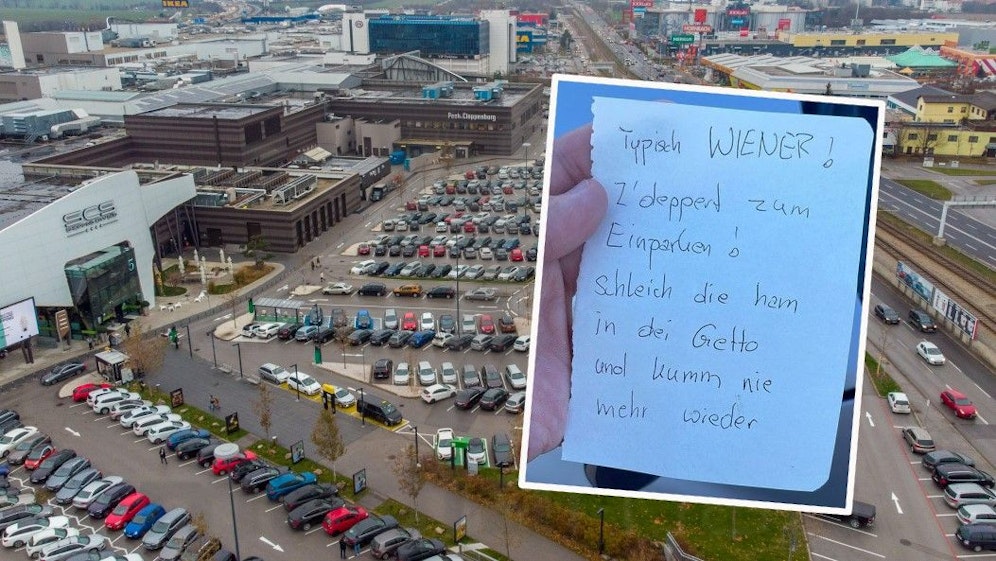 IKEA
IKEA
Peek&Cloppenburg
SCS
5
Typisch WIENER!
Z'deppert zum
Einparken!
Schleich die ham
in dei Getto
und kumm nie
mehr wieder